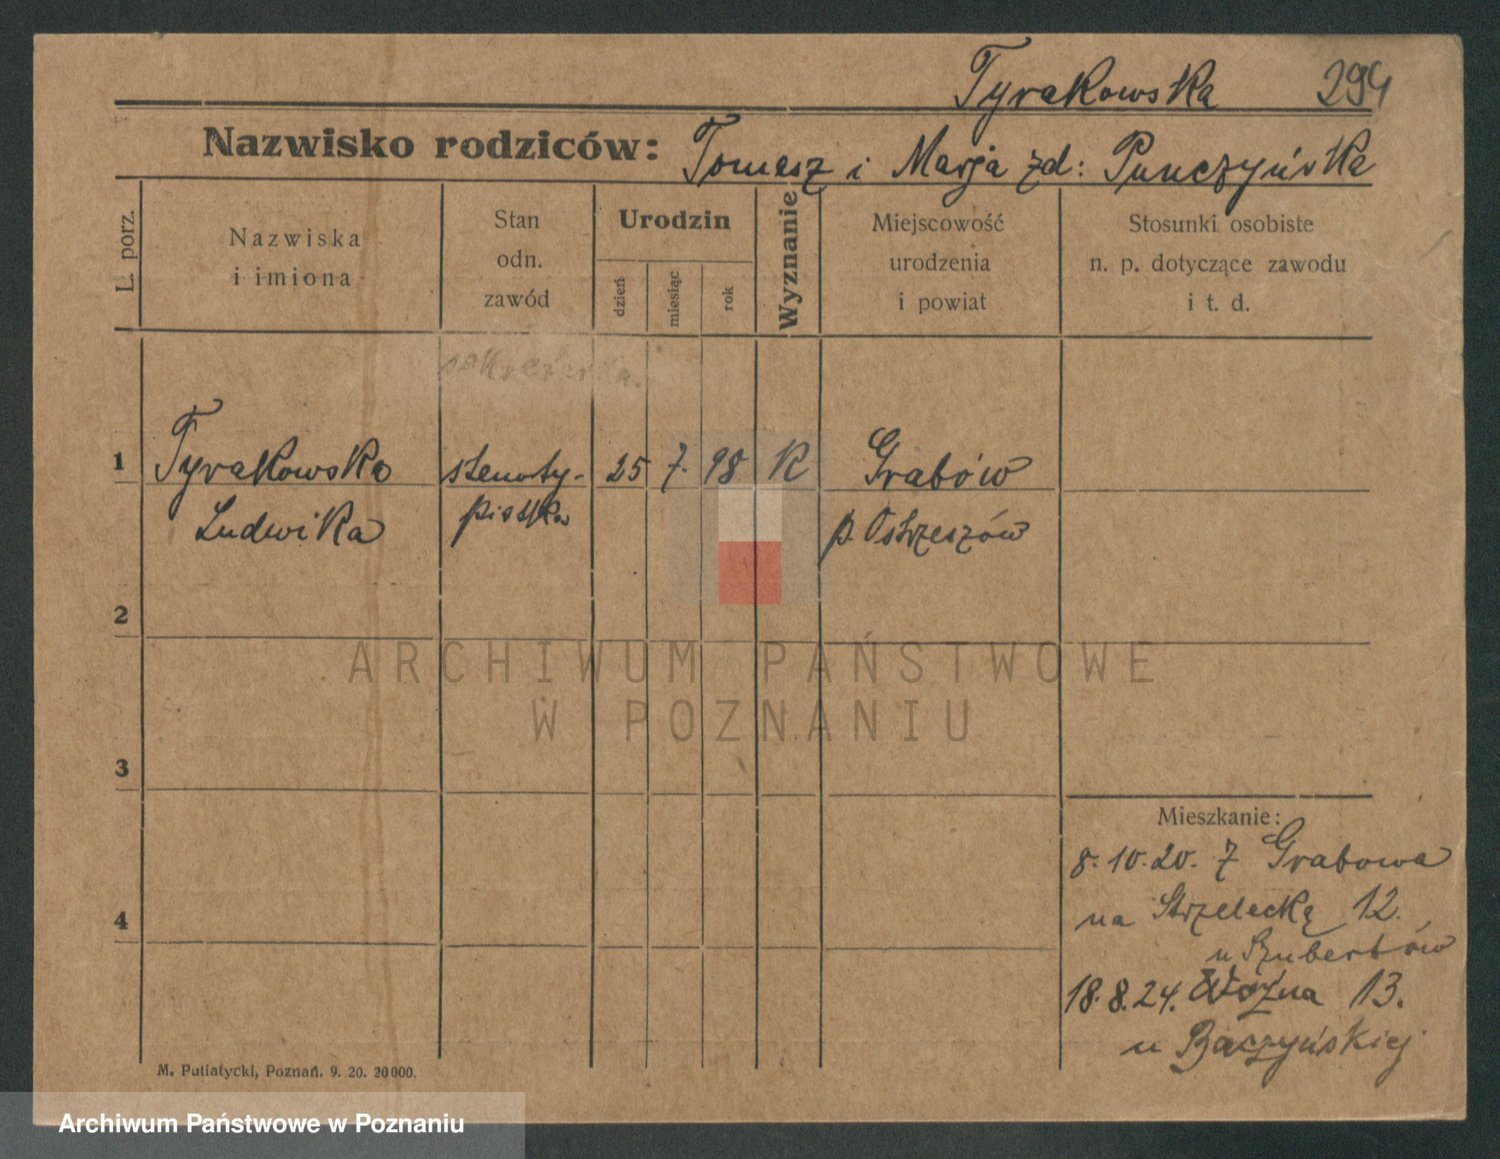 Tyrakowska 294
Nazwisko rodziców: Tomasz i Marja zd: Punczyńska
L. porz.
Nazwiska
i imiona
Stan
odn.
zawód
Urodzin
dzień
miesiąc
rok
Wyznanie
Miejscowość
urodzenia
i powiat
Stosunki osobiste
n. p. dotyczące zawodu
i t. d.
sekretarka.
1 Tyrakowska stenoty- 25 7. 98 K Grabów
Ludwika pistka p. Ostrzeszów
2
ARCHIWUM PAŃSTWOWE
W POZNANIU
3
Mieszkanie:
8.10.20. z Grabowa
4
na Strzelecką 12.
u Szubertów
18.8.24. Woźna 13.
u Baczyńskiej
M. Putiatycki, Poznań. 9. 20. 20000.
Archiwum Państwowe w Poznaniu